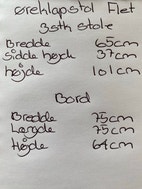 Ørehlapstol Flet
3 sth stole
Bredde 65cm
Sidde højde 37cm
højde 101cm
Bord
Bredde 75cm
Længde 75cm
Højde 64cm